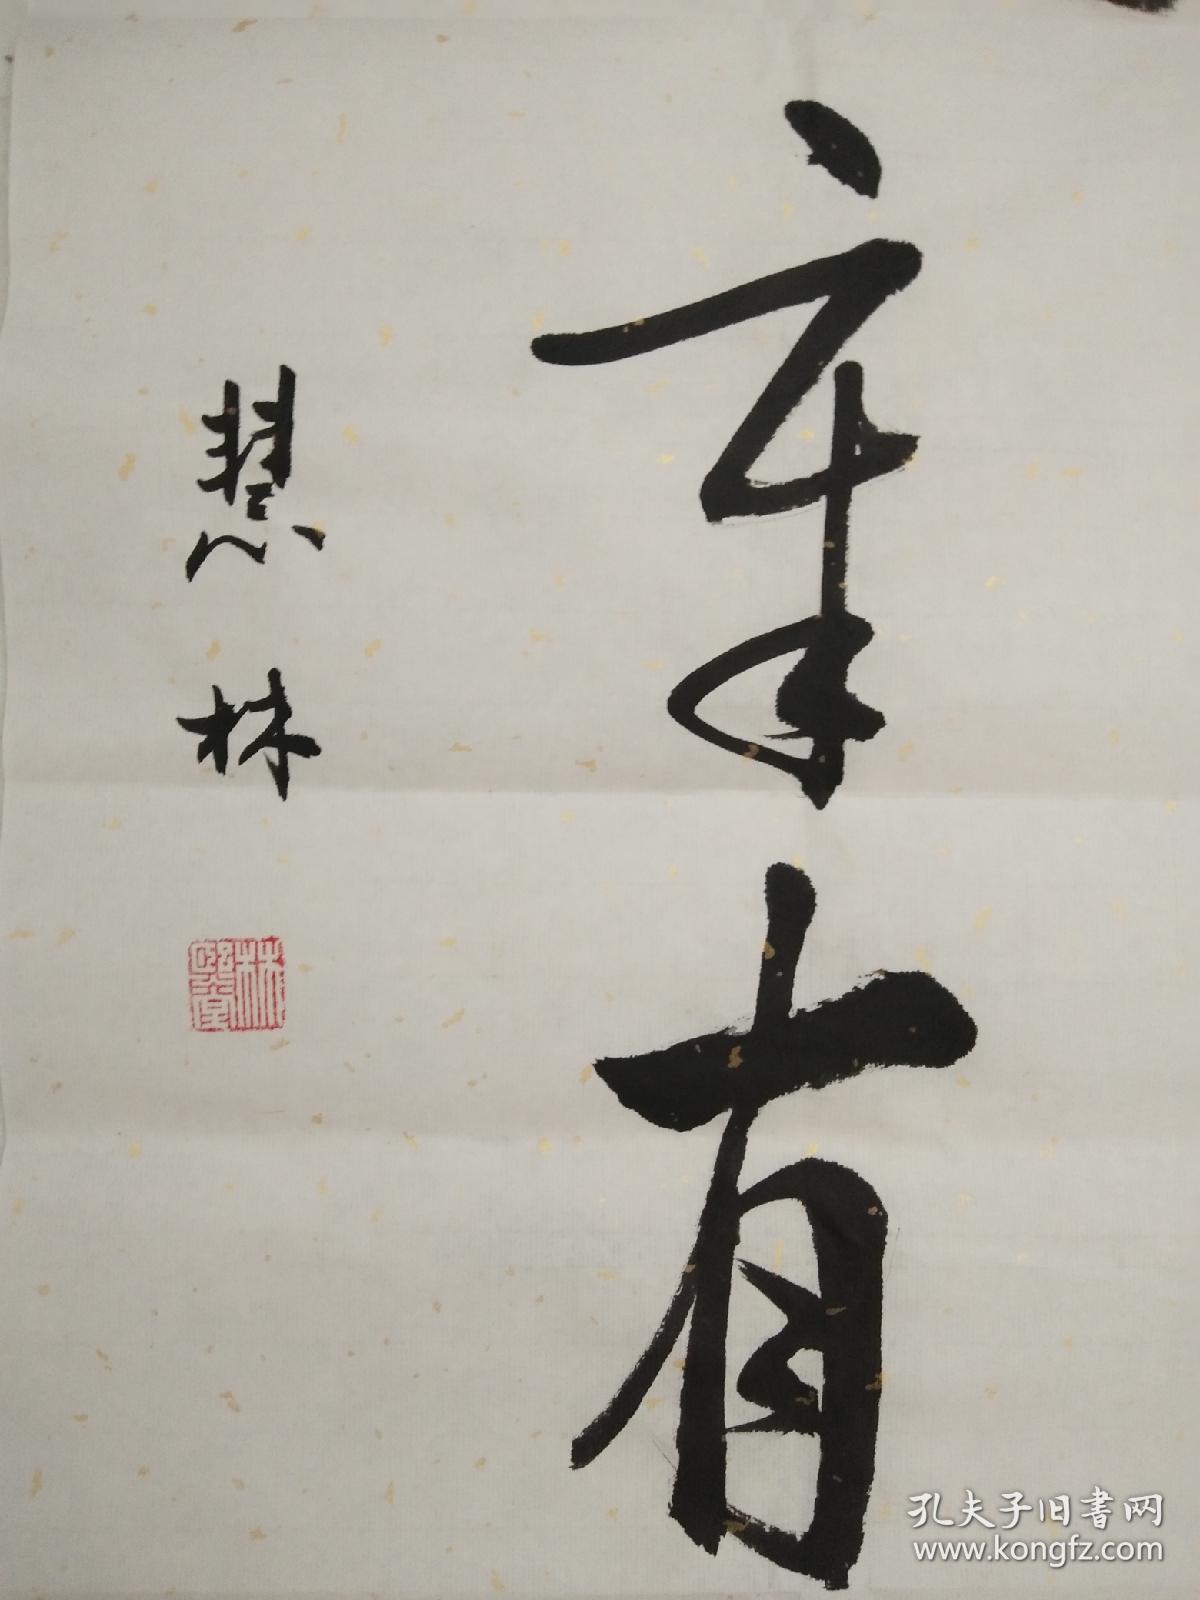 有
慧林
林
孔夫子旧書网
www.kongfz.com